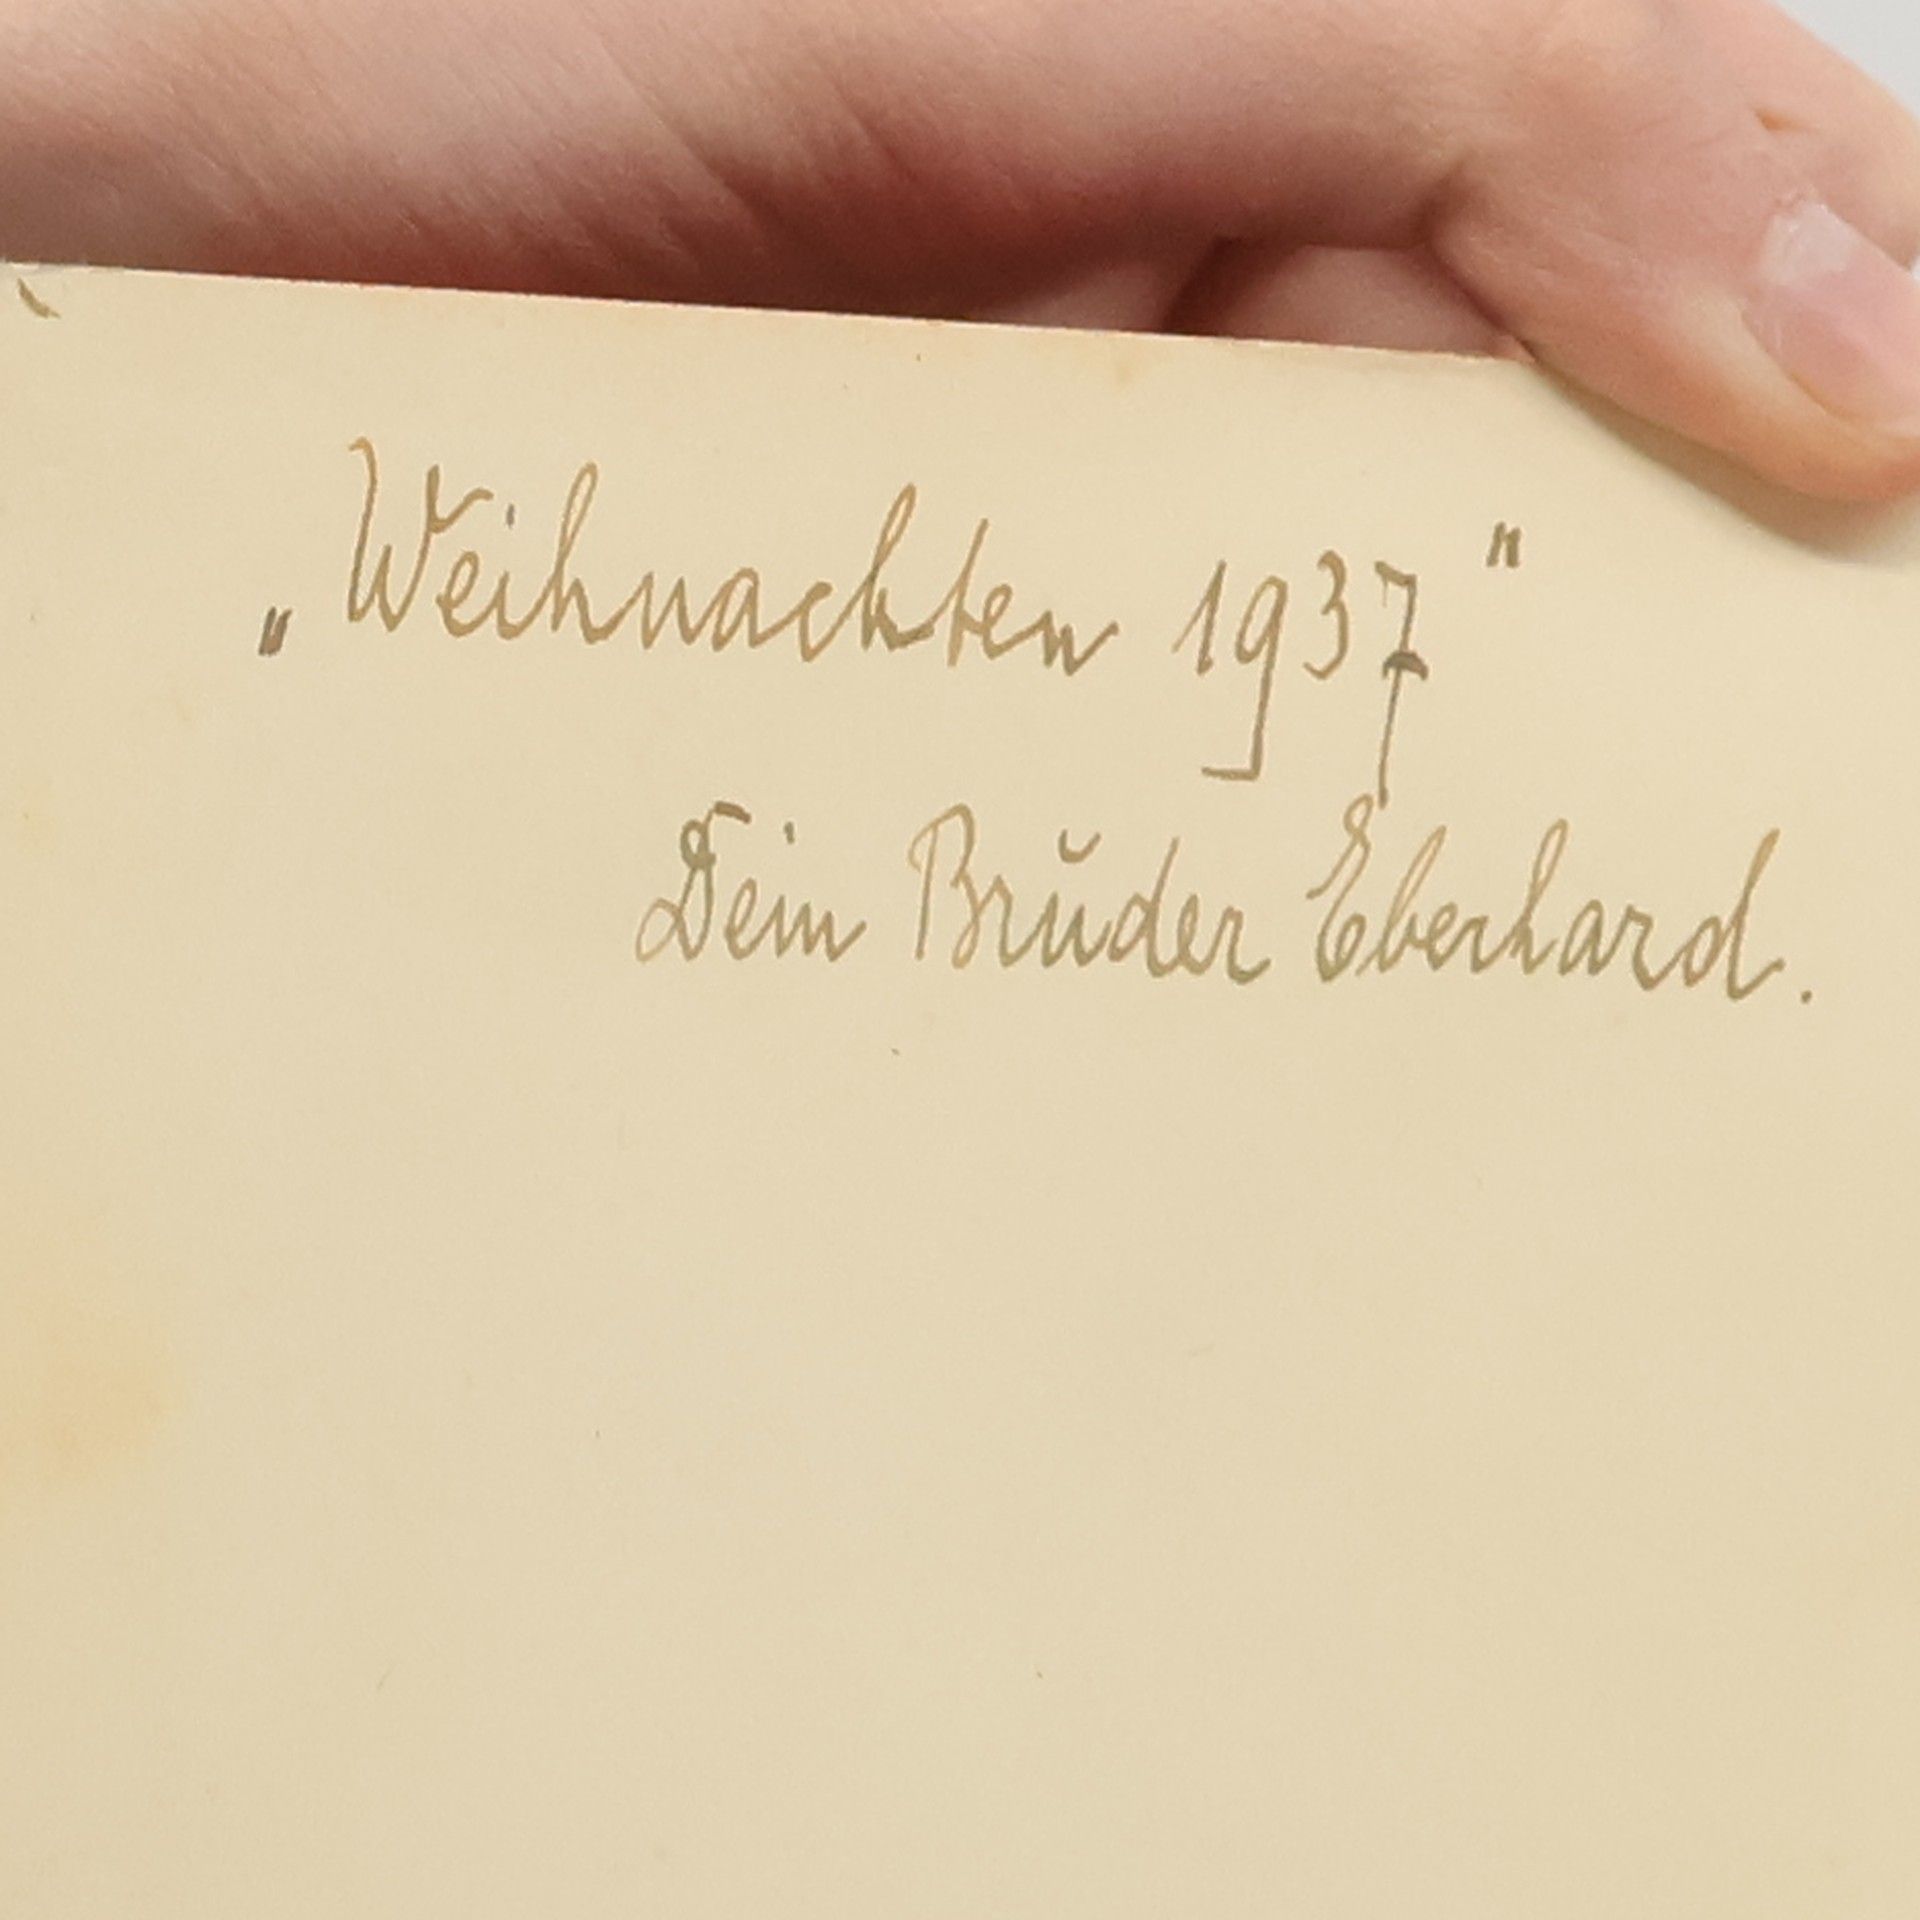 „Weihnachten 1937"
Dein Bruder Eberhard.